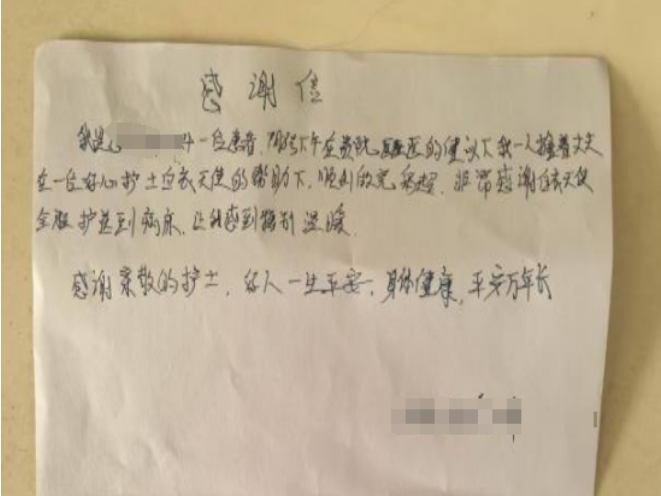 感谢信
我是 一位患者, 下午在贵院 医的建议下我一人推着丈夫
在一位好心护士白衣天使的帮助下,顺利做完 ,非常感谢白衣天使
全服护送到病床,让我感到特别温暖
感谢亲敬的护士,好人一生平安,身体健康,平安万年长